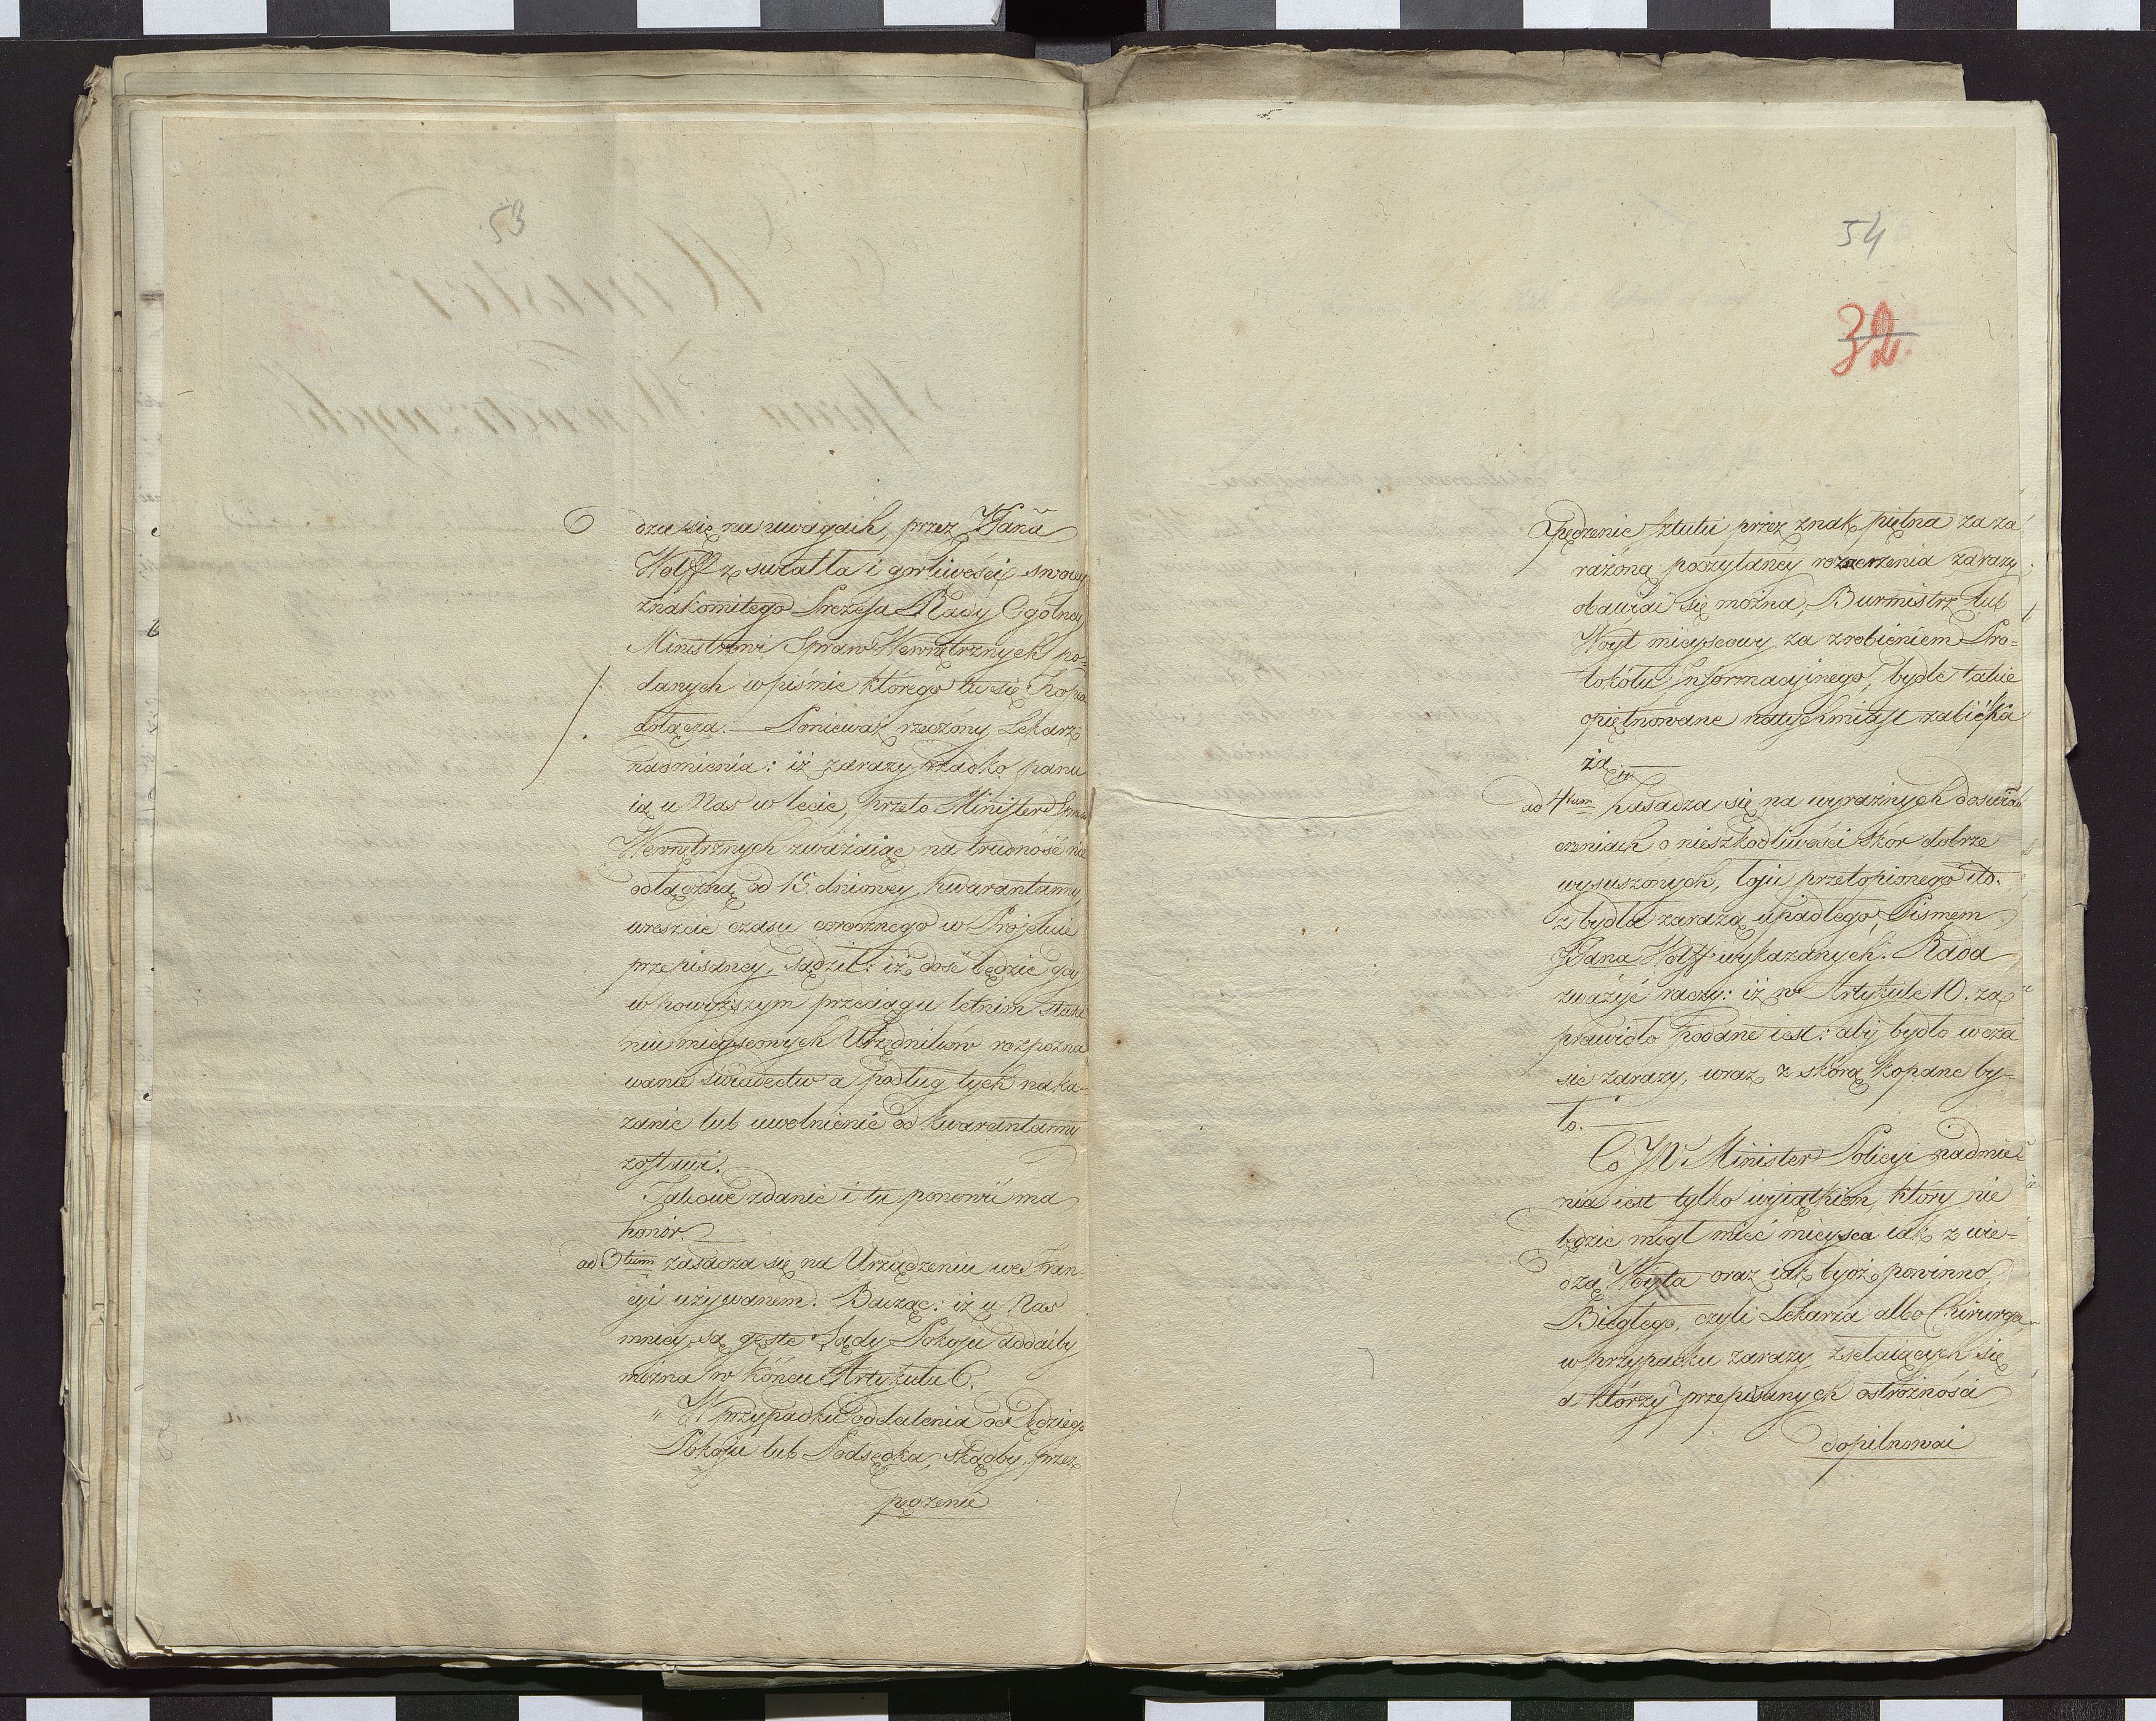 53
dza się na uwagach, przez JPana
Wolff z swiatła i gorliwości swoiey
znakomitego Prezesa Rady Ogólney
Ministrowi Spraw Wewnętrznych po=
danych w piśmie którego tu się Kopia
dołącza. — Ponieważ rzeczony Lekarz
nadmienia: iż zarazy rzadko panu
ią u Nas w lecie, przeto Minister Spraw
Wewnętrznych zważaiąc na trudność nie
odłączną od 15. dniowey kwarantanny
wreszcie czasu corocznego w Projekcie
przepisaney, sądził: iż dość będzie gdy
w powyższym przeciągu letnim
niu mieyscowych Urzędników rozpozna
wanie świadectw a podług tych naka=
zanie lub uwolnienie od kwarantanny
zostawi.
Takowe zdanie i tu ponowić ma
honor. —
ad 3tium zasadza się na Urządzeniu we Fran=
cyi używanem. Bacząc: iż u Nas
mniey są gęste Sądy Pokoju dodaćby
można w końcu Artykułu 6.
„ W przypadku oddalenia od Sędziego
Pokoju lub Podsędka, skądby przez
pędzenie
54
32.
pędzenie sztuki przez znak piętna za za
rażoną poczytaney rozszerzenia zarazy
obawiać się można, Burmistrz lub
Woyt mieyscowy za zrobieniem Pro=
tokółu Informacyinego, bydle takie
opiętnowane natychmiast zabić ka
że. —
ad 4tum Zasadza się na wyraźnych doświad
czeniach o nieszkodliwości skór dobrze
wysuszonych, łoju przetopionego itd.
z bydła zarazą upadłego, Pismem
JPana Wolff wykazanych. Rada
zważyć raczy: iż w Artykule 10. za
prawidło podane iest: aby bydło w cza
sie zarazy, wraz z skórą kopane by=
ło. —
Co JW. Minister Policyi nadmie
nia iest tylko wyiątkiem, który nie
będzie mógł mieć mieysca iak z wie=
dzą Woyta oraz iak bydź powinno
Biegłego, czyli Lekarza albo Chirurga,
w przypadku zarazy zsełaiących się
a którzy przepisanych ostrożności
dopilnować